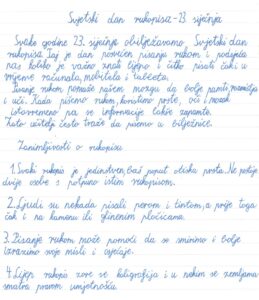 Svjetski dan rukopisa - 23. siječnja
Svake godine 23. siječnja obilježavamo Svjetski dan
rukopisa. Taj je dan posvećen pisanju rukom i podsjeća
nas koliko je važno znati lijepo i čitko pisati čak i u
vrijeme računala, mobitela i tableta.
Pisanje rukom pomaže našem mozgu da bolje pamti, razmišlja
i uči. Kada pišemo rukom, koristimo prste, oči i mozak
istovremeno pa se informacije lakše zapamte.
Zato učitelji često traže da pišemo u bilježnice.
Zanimljivosti o rukopisu
1. Svaki rukopis je jedinstven, baš poput otiska prsta. Ne postoje
dvije osobe s potpuno istim rukopisom.
2. Ljudi su nekada pisali perom i tintom, a prije toga
čak i na kamenu ili glinenim pločicama.
3. Pisanje rukom može pomoći da se smirimo i bolje
izrazimo svoje misli i osjećaje.
4. Lijep rukopis zove se kaligrafija i u nekim se zemljama
smatra pravom umjetnošću.